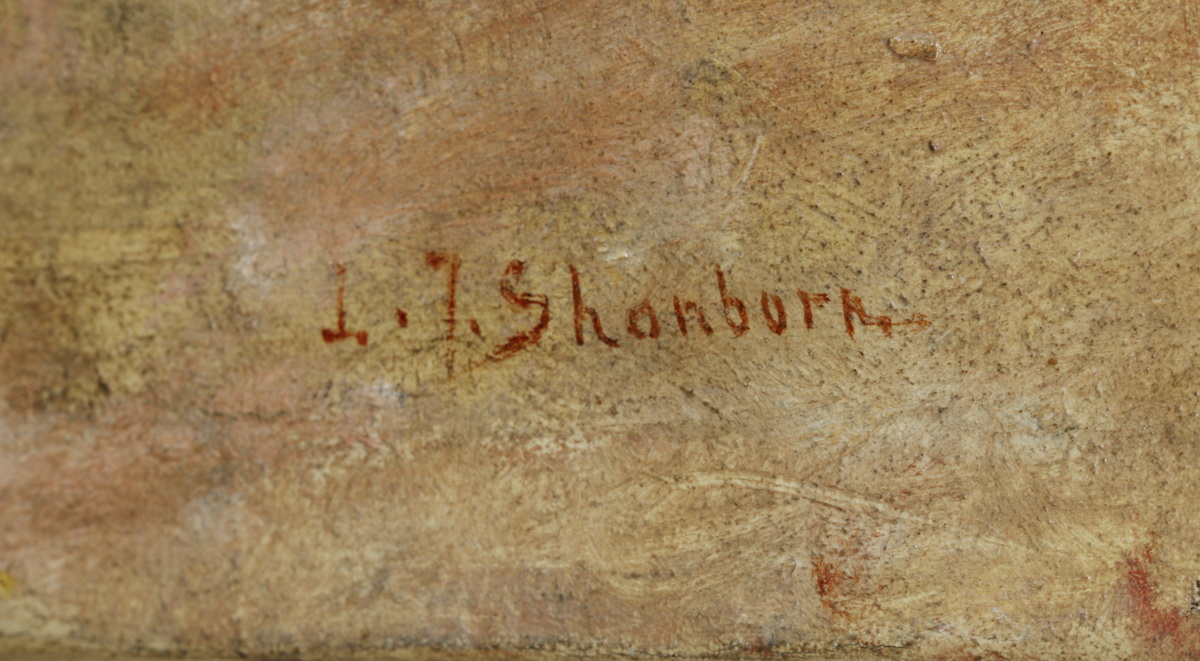 L. J. Shonborn